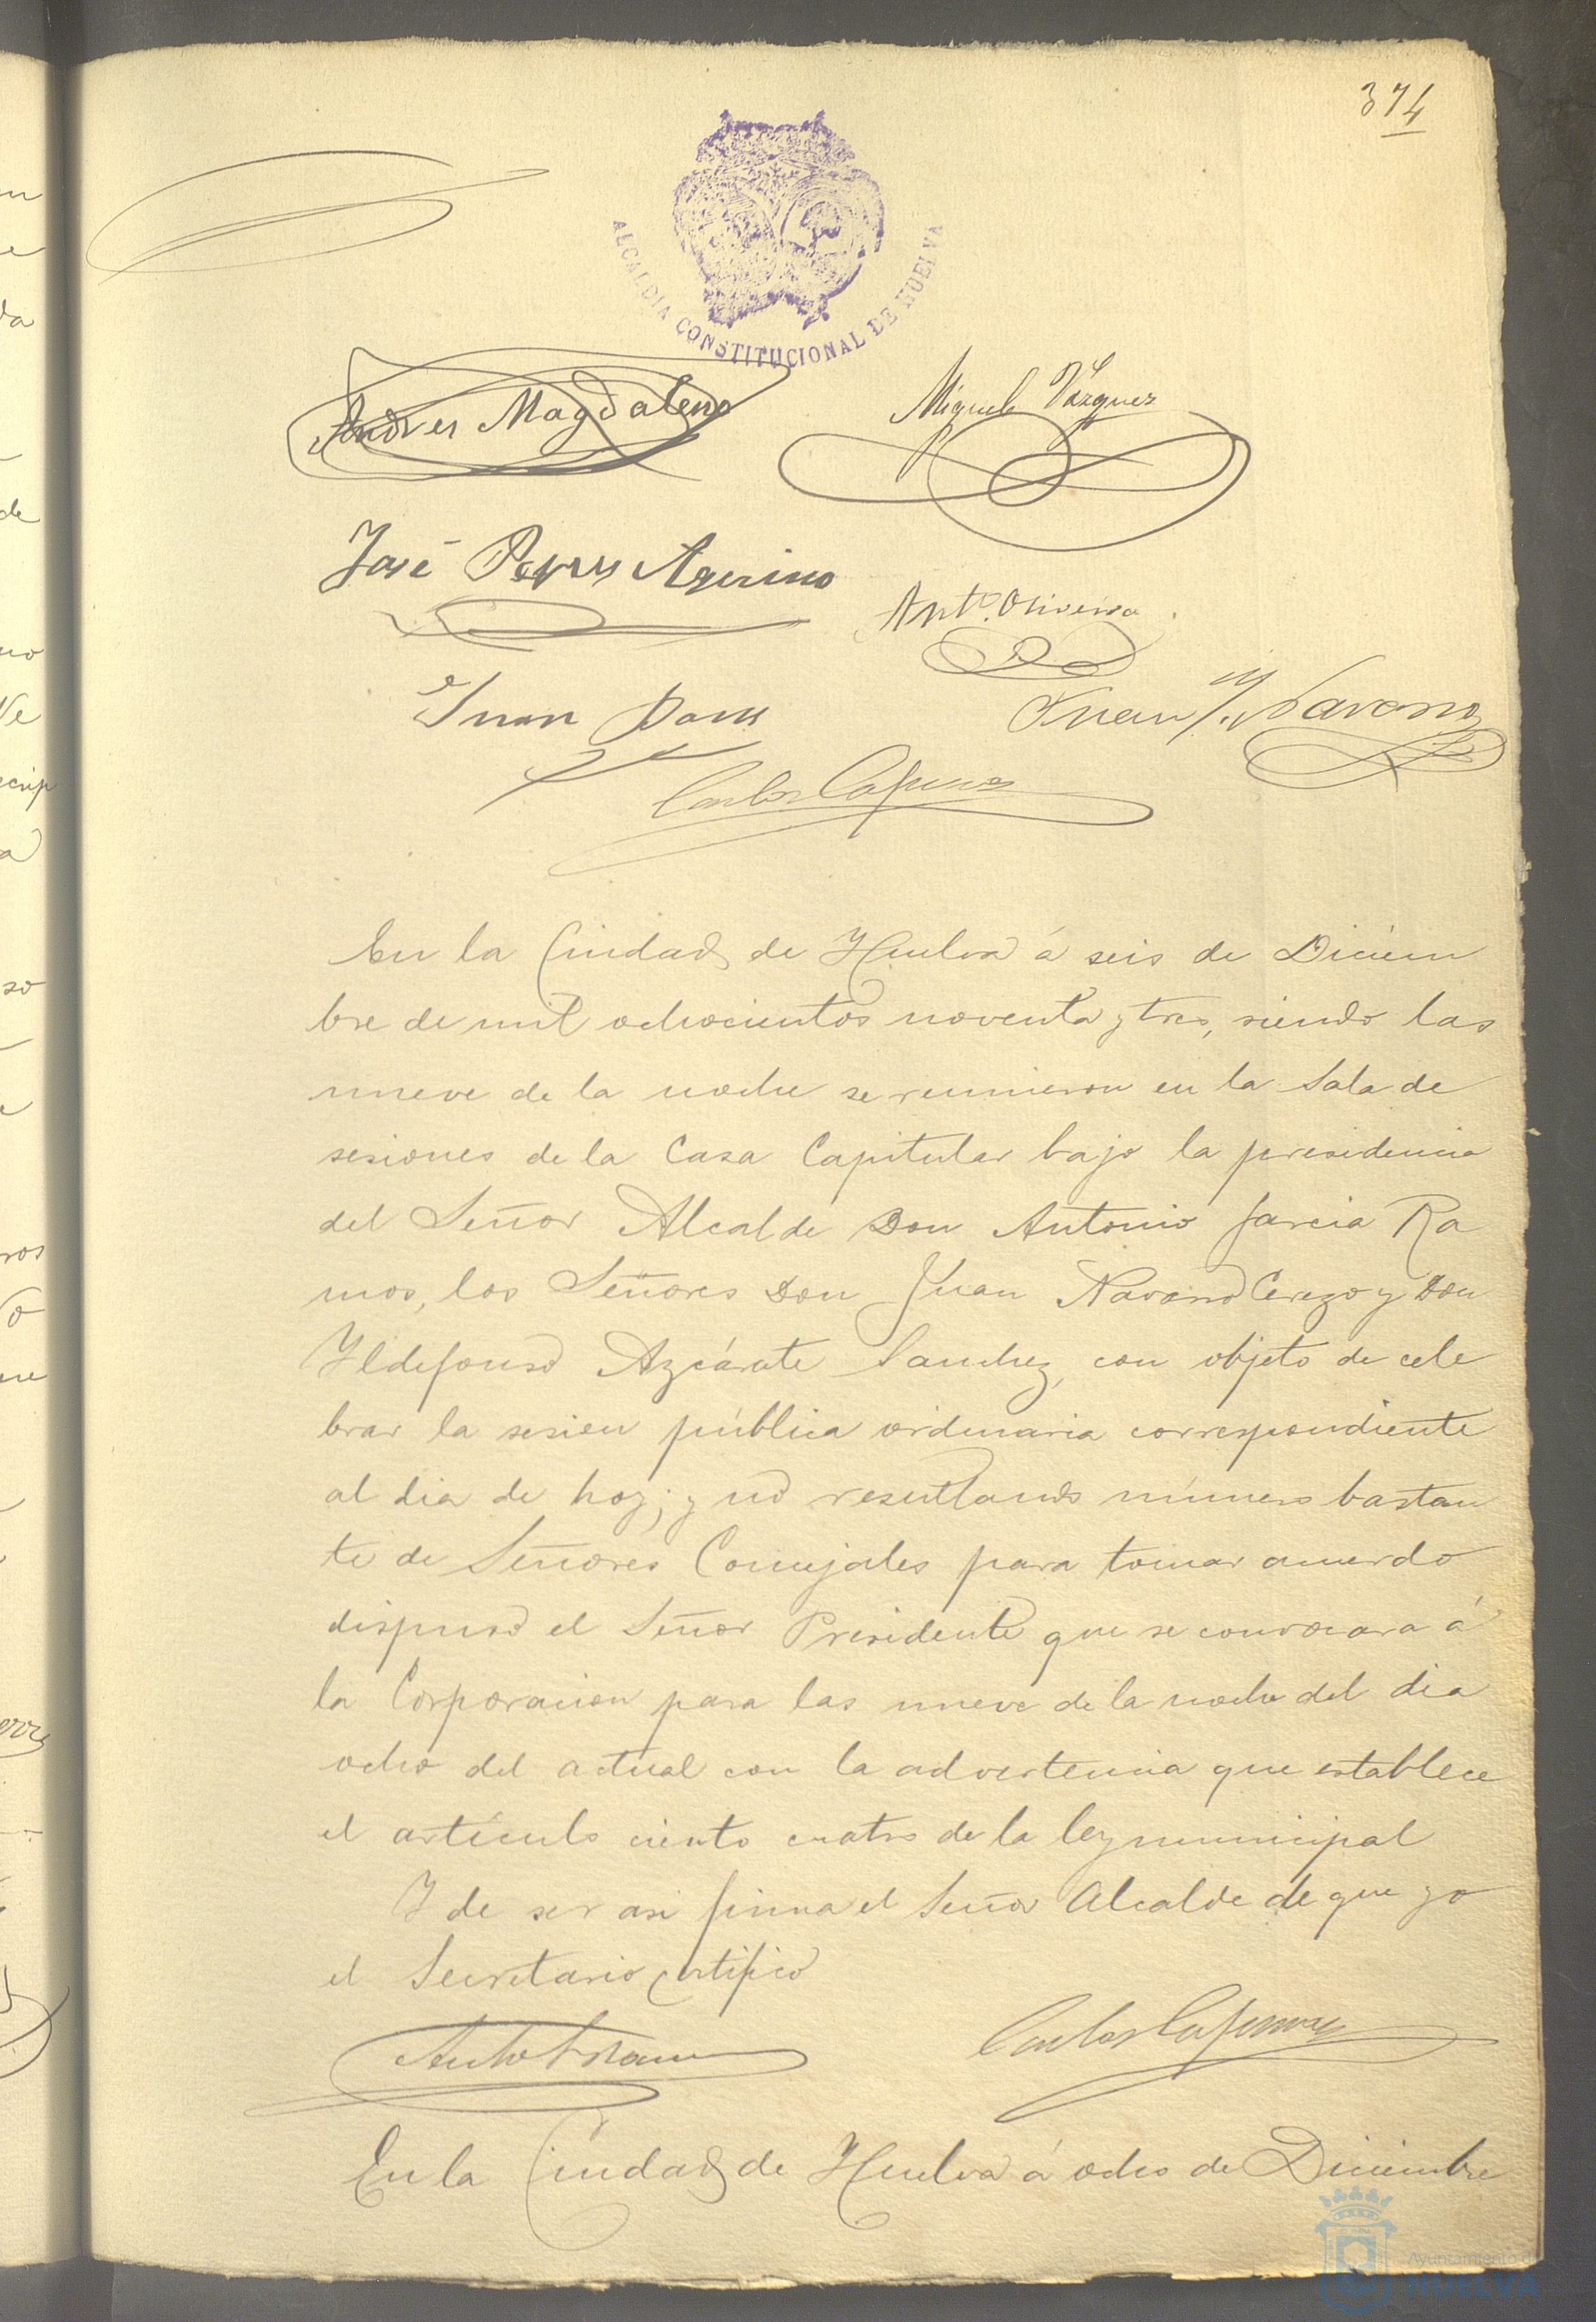 374
ALCALDIA CONSTITUCIONAL DE HUELVA
Andres Magdaleno
Miguel Vazquez
José
Antº. Oliveira
Juan
Juan J. Navarro
Carlos
En la Ciudad de Huelva á seis de Diciem
bre de mil ochocientos noventa y tres, siendo las
nueve de la noche se reunieron en la Sala de
sesiones de la Casa Capitular bajo la presidencia
del Señor Alcalde Don Antonio Garcia Ra
mos, los Señores Don Juan Navarro Cerezo y Don
Yldefonso Azcárate Sanchez, con objeto de cele
brar la sesion pública ordinaria correspondiente
al dia de hoy; y no resultando número bastan
te de Señores Concejales para tomar acuerdo
dispuso el Señor Presidente que se convocara á
la Corporacion para las nueve de la noche del dia
ocho del actual con la advertencia que establece
el artículo ciento cuatro de la ley municipal
Y de ser asi firma el Señor Alcalde de que yo
el Secretario certifico
Carlos
En la Ciudad de Huelva á ocho de Diciembre
Ayuntamiento d
HUELVA